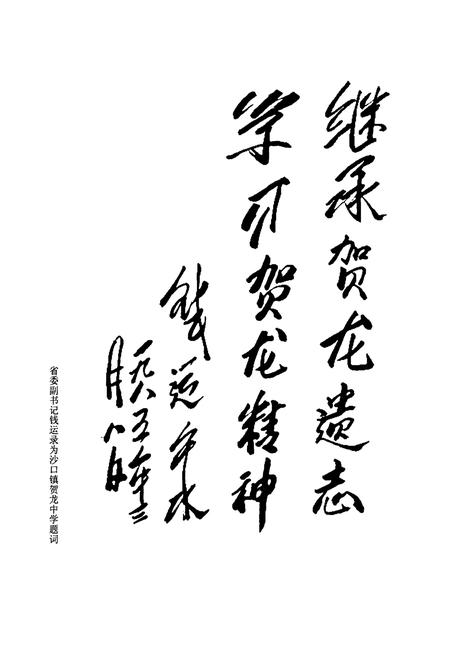 继承贺龙遗志
学习贺龙精神
钱运录
一九八五年
月八日
省委副书记钱运录为沙口镇贺龙中学题词